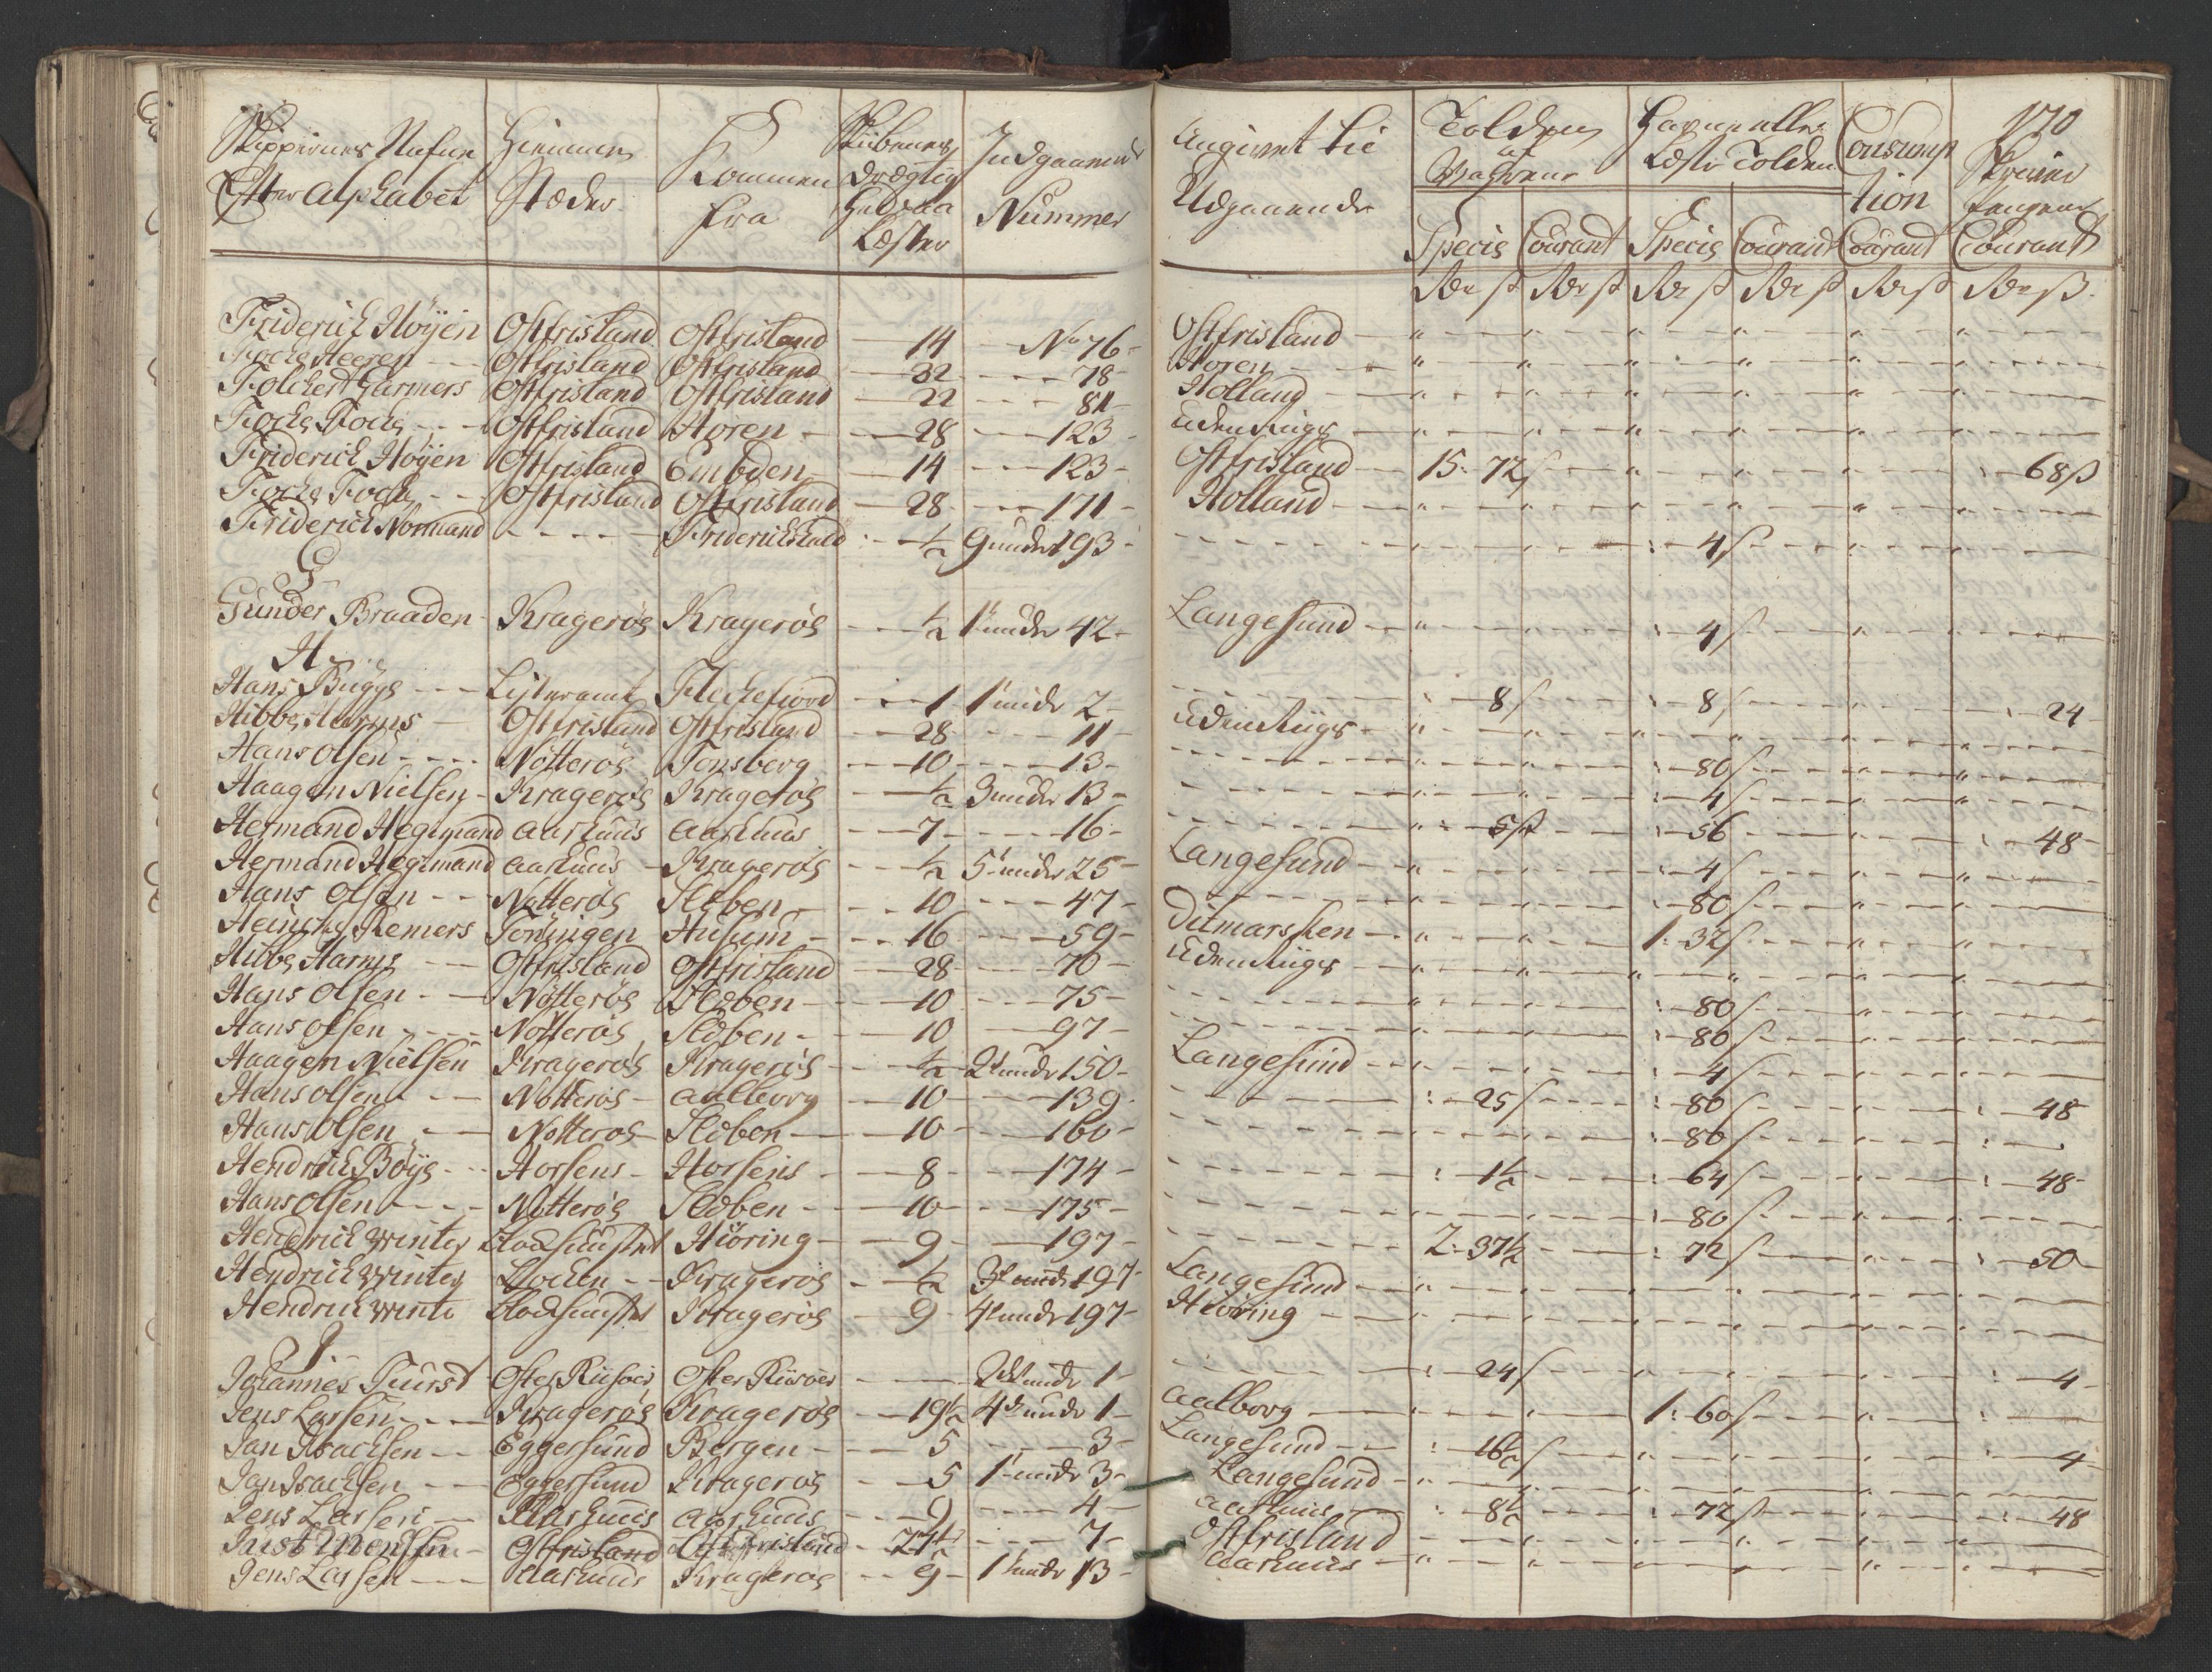 Skippernes Nafne Efter Alphabet | Hiemmen Stæder | Kommen fra | Skibenes Drægtig Hed paa Læster | Indgaaende Nummer | Angivet til Udgaaende | Tolden af Vahrene | Havne eller Læste Tolden | Consumption | 170
Specis | Courant | Specis | Courant | Courant | Courant
Friderich Höyen | Ostfrisland | Ostfrisland | 14 | No 76 | Ostfrisland
Focke Heeren | Ostfrisland | Ostfrisland | 32 | 78 | Horen
Folchert Garmers | Ostfrisland | Ostfrisland | 22 | 81 | Holland
Focke Focke | Ostfrisland | Horen | 28 | 123 | udenRiigs
Friderich Höyen | Ostfrisland | Embden | 14 | 123 | Ostfrisland | 15 : 72 | 68 ß
Focke Focke | Ostfrisland | Ostfrisland | 28 | 171 | Holland
Friderich Normand | Friderichshald | ½ | 9 under 193 | 4 ß
G
Gunder Braaden | Krageröe | Krageröe | ½ | 1 under 42 | Langesund | 4 ß
H
Hans Bugge | Listeramt | Flechefiord | 1 | 1 under 2 | 8 ß | 8 ß | 24
Hibbe Harms | Ostfrisland | Ostfrisland | 28 | 11 | udenRiigs
Hans Olsen | Nötteröe | Tonsberg | 10 | 13 | 80 ß
Haagen Nielsen | Krageröe | Krageröe | ½ | 3 under 13 | 4 ß
Hermand Hegemand | Aarhuus | Aarhuus | 7 | 16 | 5 ß | 56 | 48
Hermand Hegemand | Aarhuus | Krageröe | ½ | 5 under 25 | Langesund | 4 ß
Hans Olsen | Nötteröe | Sleben | 10 | 47 | 80 ß
Heinche Remers | Tönningen | Husum | 16 | 59 | Ditmarsken | 1 : 32 ß
Hibbe Harms | Ostfrisland | Ostfrisland | 28 | 70 | udenRiigs
Hans Olsen | Nötteröe | Sleben | 10 | 75 | 80 ß
Hans Olsen | Nötteröe | Sleben | 10 | 97 | 80 ß
Haagen Nielsen | Krageröe | Krageröe | ½ | 2 under 150 | Langesund | 4 ß
Hans Olsen | Nötteröe | Aalborg | 10 | 139 | 25 ß | 80 ß | 48
Hans Olsen | Nötteröe | Sleben | 10 | 160 | 80 ß
Hendrich Böye | Horsens | Horsens | 8 | 174 | 1½ | 64 ß | 48
Hans Olsen | Nötteröe | Sleben | 10 | 175 | 80 ß
Hendrich Winter | Hiöring | 9 | 197 | 2 : 37½ | 72 ß | 50
Hendrich Winter | Krageröe | ½ | 3 under 197 | Langesund
Hendrich Winter | Krageröe | 9 | 4 under 197 | Hiöring
J
Johannes Fürst | OsterRiisöer | OsterRiisöer | 2 under 1 | 24 ß | 4
Jens Larsen | Krageröe | Krageröe | 19½ | 4 under 1 | Aalborg | 1 : 60 ß
Jan Isachsen | Eggersund | Bergen | 5 | 3 | Langesund | 16½ ß | 4
Jan Isachsen | Eggersund | Krageröe | 5 | 1 under 3 | Langesund
Jens Larsen | Aarhuus | Aarhuus | 9 | 4 | Aarhuus | 8½ | 72 ß | 48
Just Menssen | Ostfrisland | Ostfrisland | 27½ | 7 | Ostfrisland
Jens Larsen | Aarhuus | Krageröe | 9 | 1 under 13 | Aarhuus